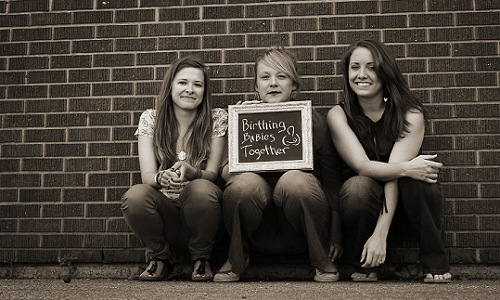 Birthing
Babies
Together